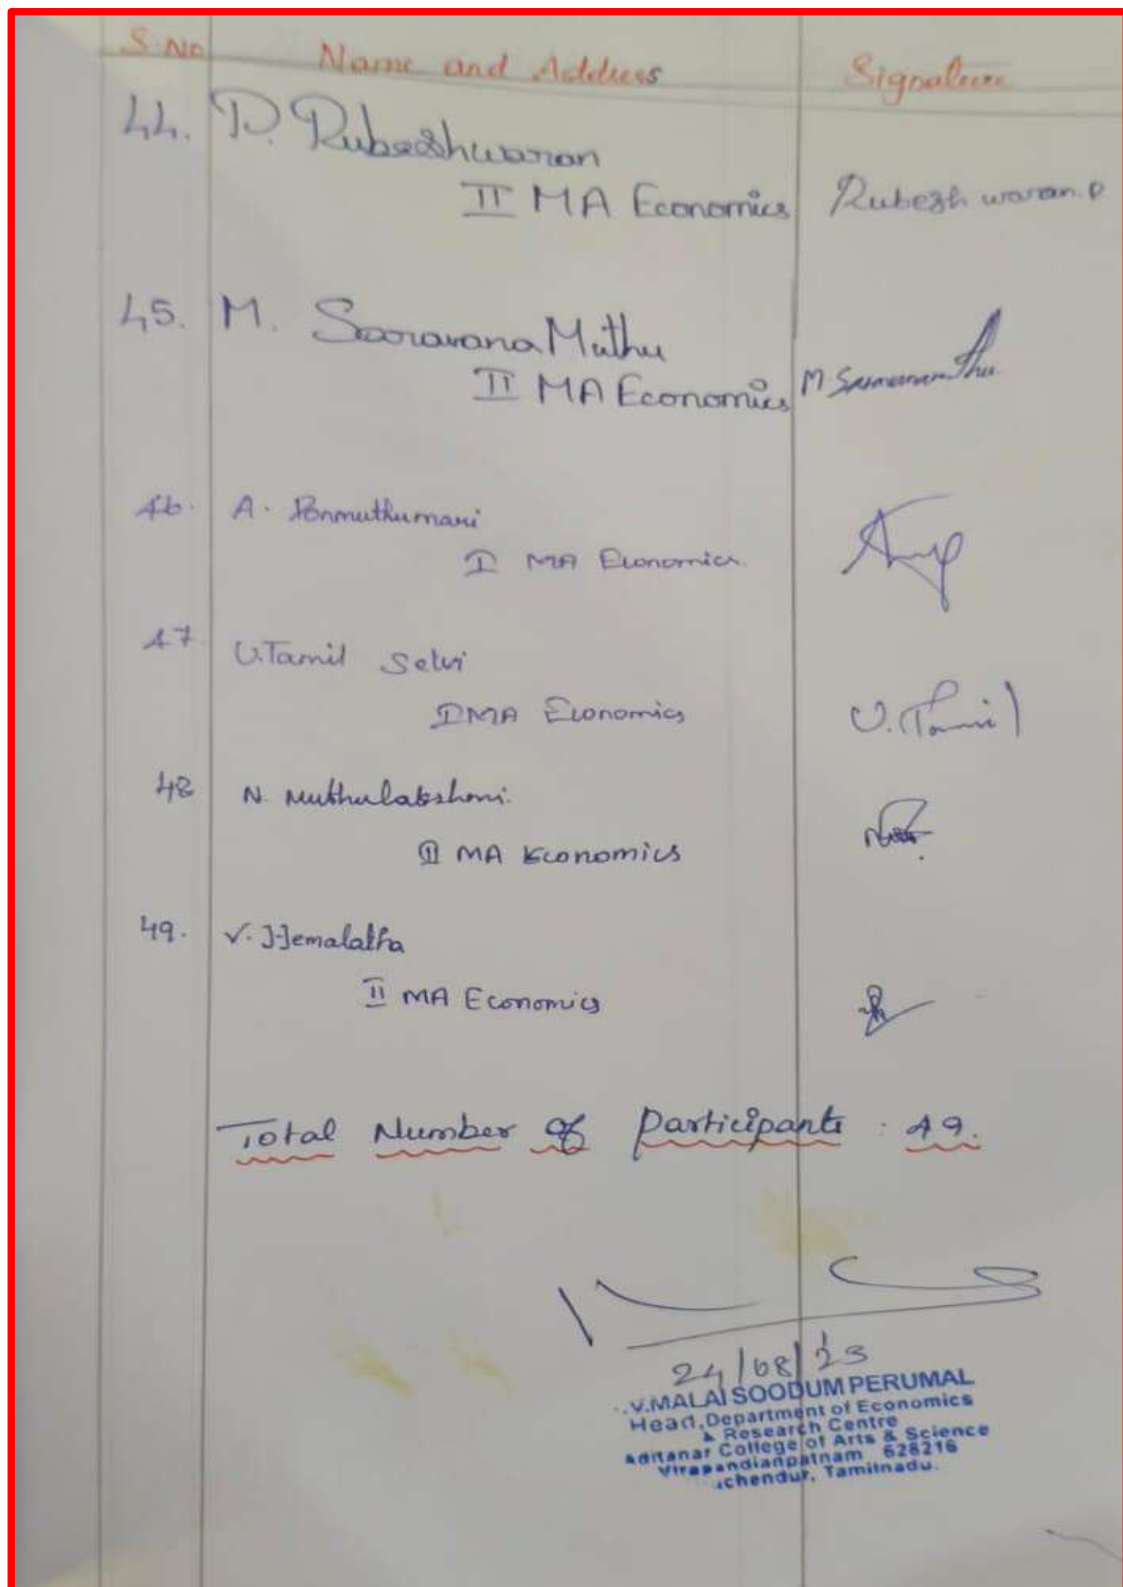 S.No Name and Address Signature
44. P. Rubeshwaran
II MA Economics Rubeshwaran.P
45. M. SaravanaMuthu
II MA Economics M.
46. A. Ponmuthumari
I MA Economics.
47. U.Tamil Selvi
I MA Economics U.Tamil
48 N. Muthulakshmi.
II MA Economics
49. V. Hemalatha
II MA Economics
Total Number of Participants : 49.
24/08/23
V.MALAI SOODUM PERUMAL
Head, Department of Economics
& Research Centre
Aditanar College of Arts & Science
Virapandianpatnam 628216
chendur, Tamilnadu.